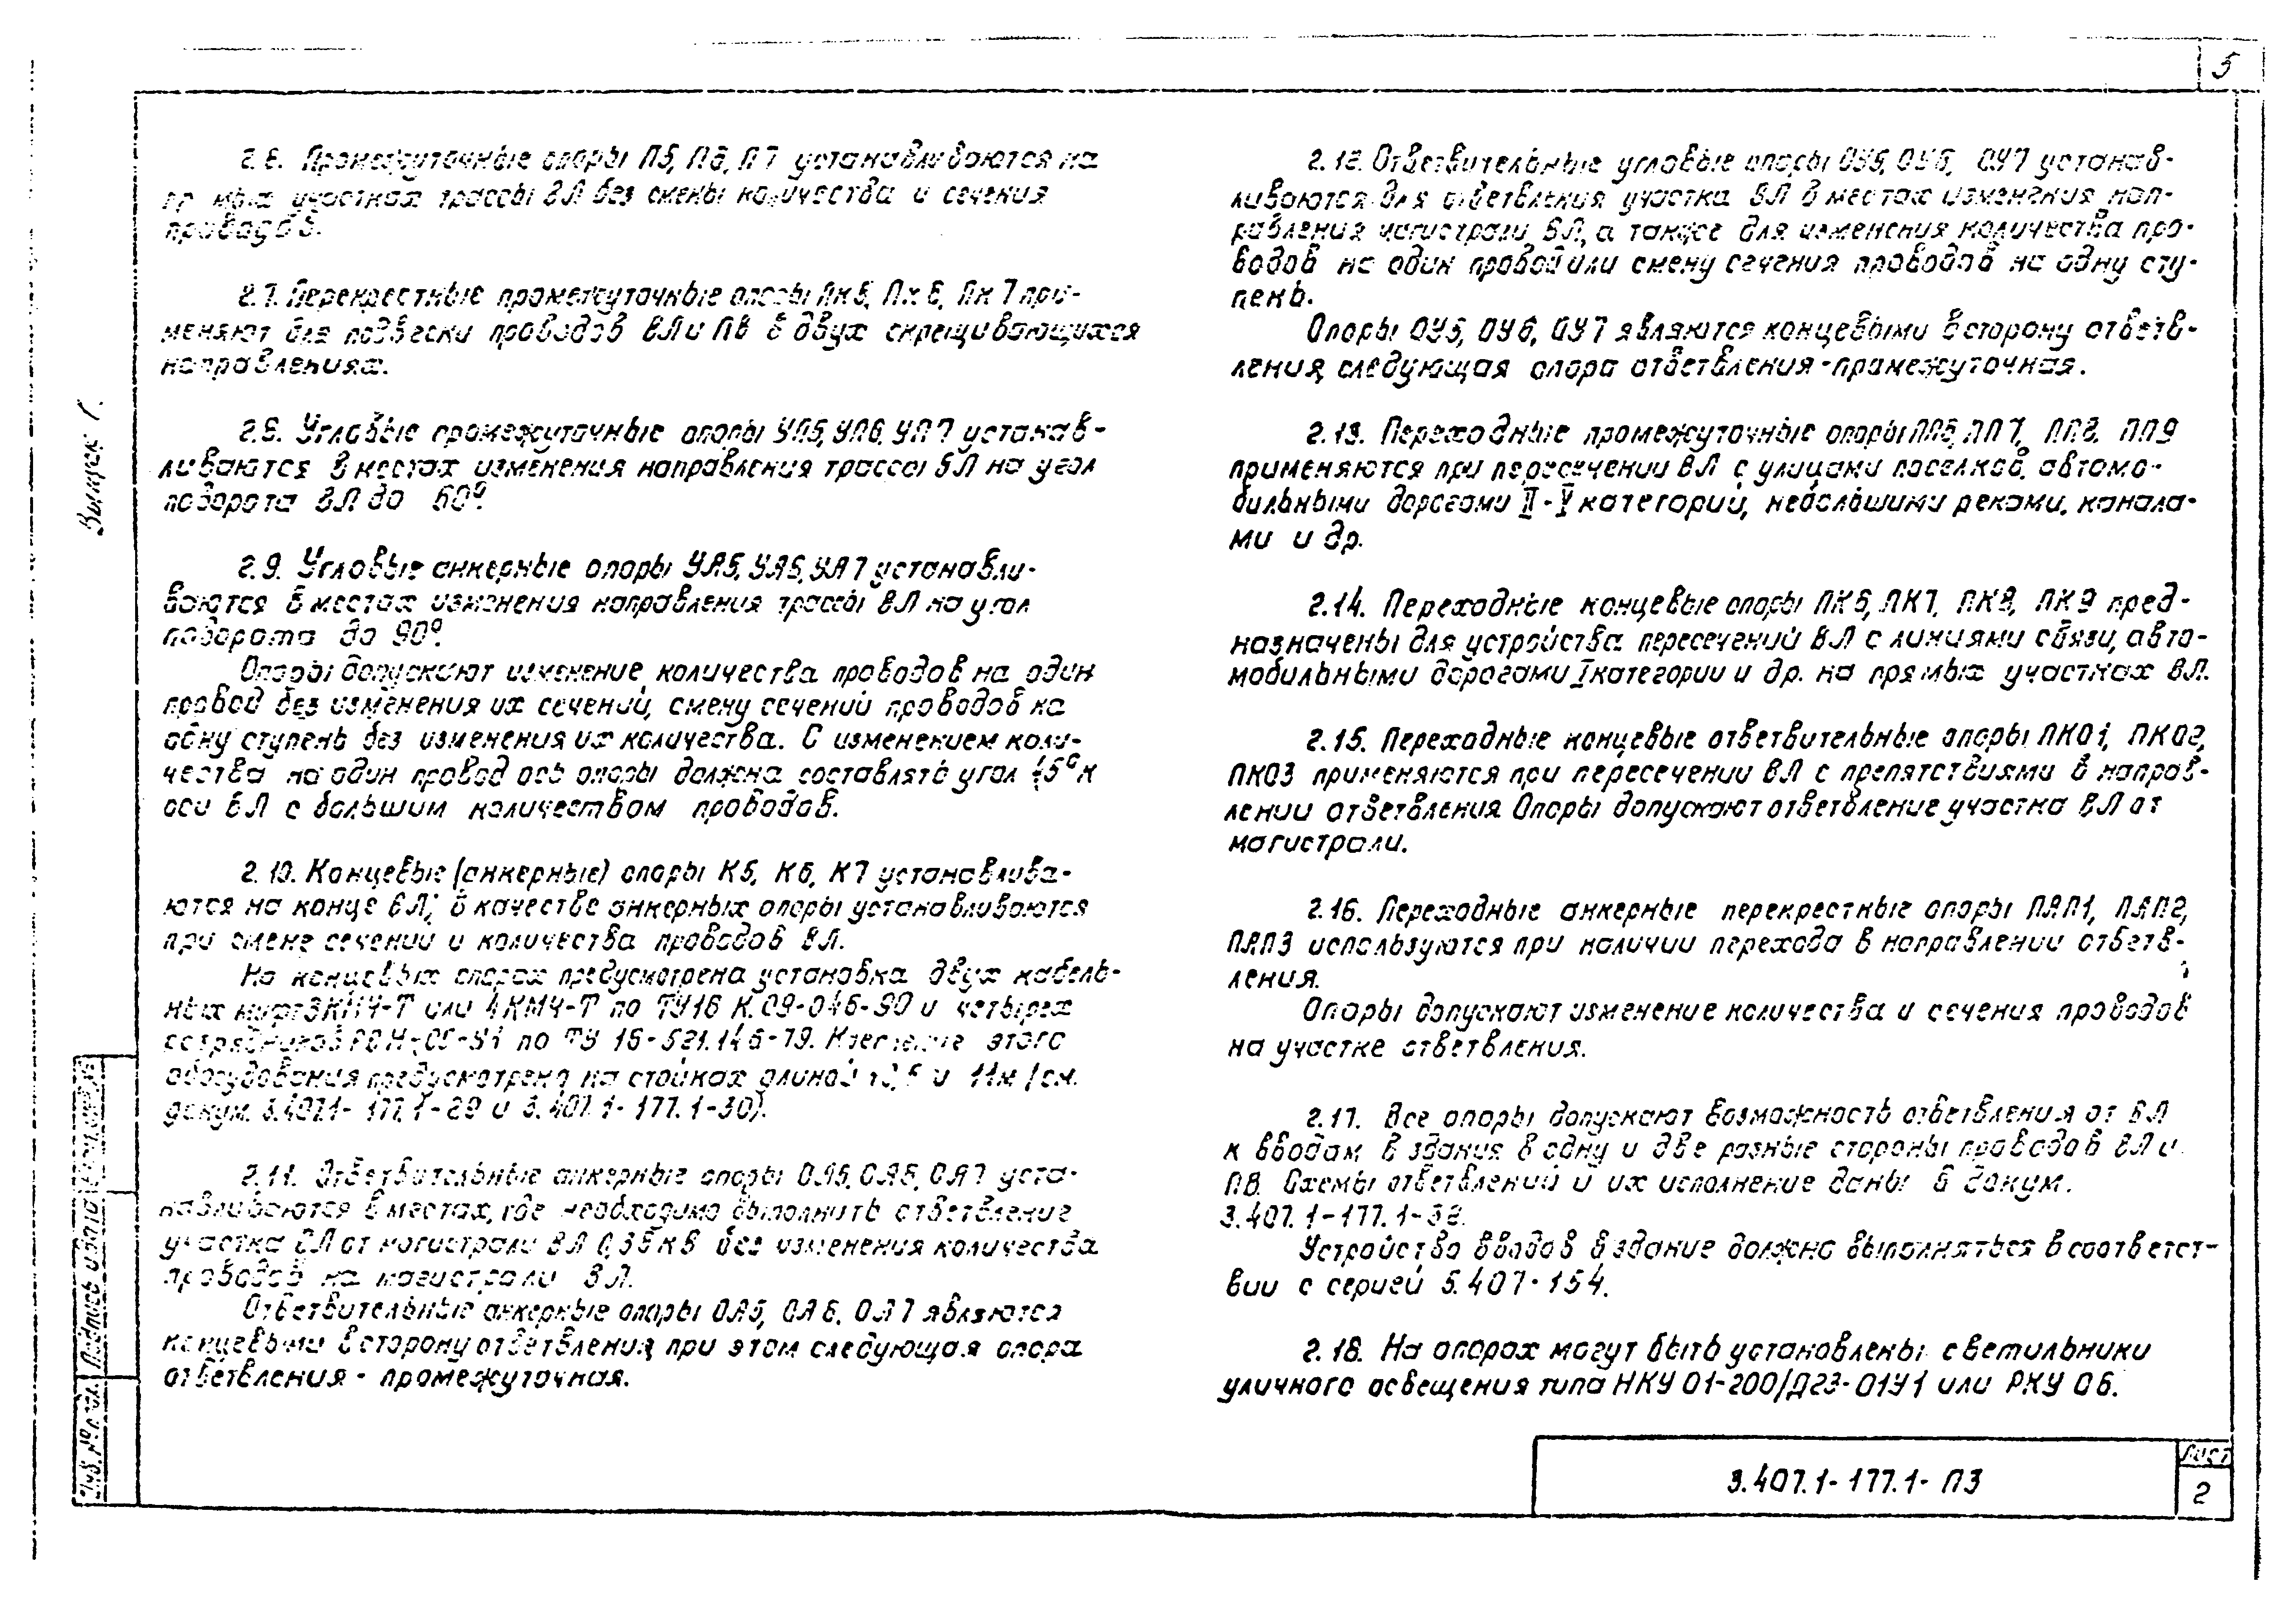 5
2.6. Промежуточные опоры П5, П6, П7 устанавливаются на
участках трассы ВЛ без смены количества и сечения
проводов.
2.7. Перекрестные промежуточные опоры Пк5, Пк6, Пк7 при-
меняют для подвески проводов ВЛ и ПВ в двух скрещивающихся
направлениях.
2.8. Угловые промежуточные опоры УП5, УП6, УП7 устанав-
ливаются в местах изменения направления трассы ВЛ на угол
поворота ВЛ до 60°.
2.9. Угловые анкерные опоры УА5, УА6, УА7 устанавли-
ваются в местах изменения направления трассы ВЛ на угол
поворота до 90°.
Опоры допускают изменение количества проводов на один
провод без изменения их сечений, смену сечений проводов на
одну ступень без изменения их количества. С изменением коли-
чества на один провод ось опоры должна составлять угол 45° к
оси ВЛ с большим количеством проводов.
2.10. Концевые (анкерные) опоры К5, К6, К7 устанавлива-
ются на конце ВЛ; в качестве анкерных опоры устанавливаются
при смене сечений и количества проводов ВЛ.
На концевых опорах предусмотрена установка двух кабель-
ных муфт 3КМЧ-Т или 4КМЧ-Т по ТУ16 К.09-046-90 и четырех
по ТУ 16-521.146-79. Крепление этого
оборудования предусмотрено на стойках длиной 10,5 и 11м (см.
докум. 3.407.1-177.1-29 и 3.407.1-177.1-30).
2.11. Ответвительные анкерные опоры ОА5, ОА6, ОА7 уста-
навливаются в местах, где необходимо выполнить ответвление
участка ВЛ от магистрали ВЛ 0,38 кВ без изменения количества
проводов на магистрали ВЛ.
Ответвительные анкерные опоры ОА5, ОА6, ОА7 являются
концевыми в сторону ответвления, при этом следующая опора
ответвления - промежуточная.
2.12. Ответвительные угловые опоры ОУ5, ОУ6, ОУ7 устанав-
ливаются для ответвления участка ВЛ в местах изменения нап-
равления магистрали ВЛ, а также для изменения количества про-
водов на один провод или смену сечения проводов на одну сту-
пень.
Опоры ОУ5, ОУ6, ОУ7 являются концевыми в сторону ответв-
ления, следующая опора ответвления - промежуточная.
2.13. Переходные промежуточные опоры ПП6, ПП7, ПП8, ПП9
применяются при пересечении ВЛ с улицами поселков, автомо-
бильными дорогами II-V категорий, небольшими реками, канала-
ми и др.
2.14. Переходные концевые опоры ПК6, ПК7, ПК8, ПК9 пред-
назначены для устройства пересечений ВЛ с линиями связи, авто-
мобильными дорогами I категории и др. на прямых участках ВЛ.
2.15. Переходные концевые ответвительные опоры ПКО1, ПКО2,
ПКО3 применяются при пересечении ВЛ с препятствиями в направ-
лении ответвления. Опоры допускают ответвление участка ВЛ от
магистрали.
2.16. Переходные анкерные перекрестные опоры ПАП1, ПАП2,
ПАП3 используются при наличии перехода в направлении ответв-
ления.
Опоры допускают изменение количества и сечения проводов
на участке ответвления.
2.17. Все опоры допускают возможность ответвления от ВЛ
к вводам в здания в одну и две разные стороны проводов ВЛ и
ПВ. Схемы ответвлений и их исполнение даны в докум.
3.407.1-177.1-38.
Устройство вводов в здание должно выполняться в соответст-
вии с серией 5.407-154.
2.18. На опорах могут быть установлены светильники
уличного освещения типа НКУ 01-200/Д23-01У1 или РКУ 06.
Выпуск 1.
Подпись и дата
Инв. № подл.
3.407.1-177.1-ПЗ
Лист
2